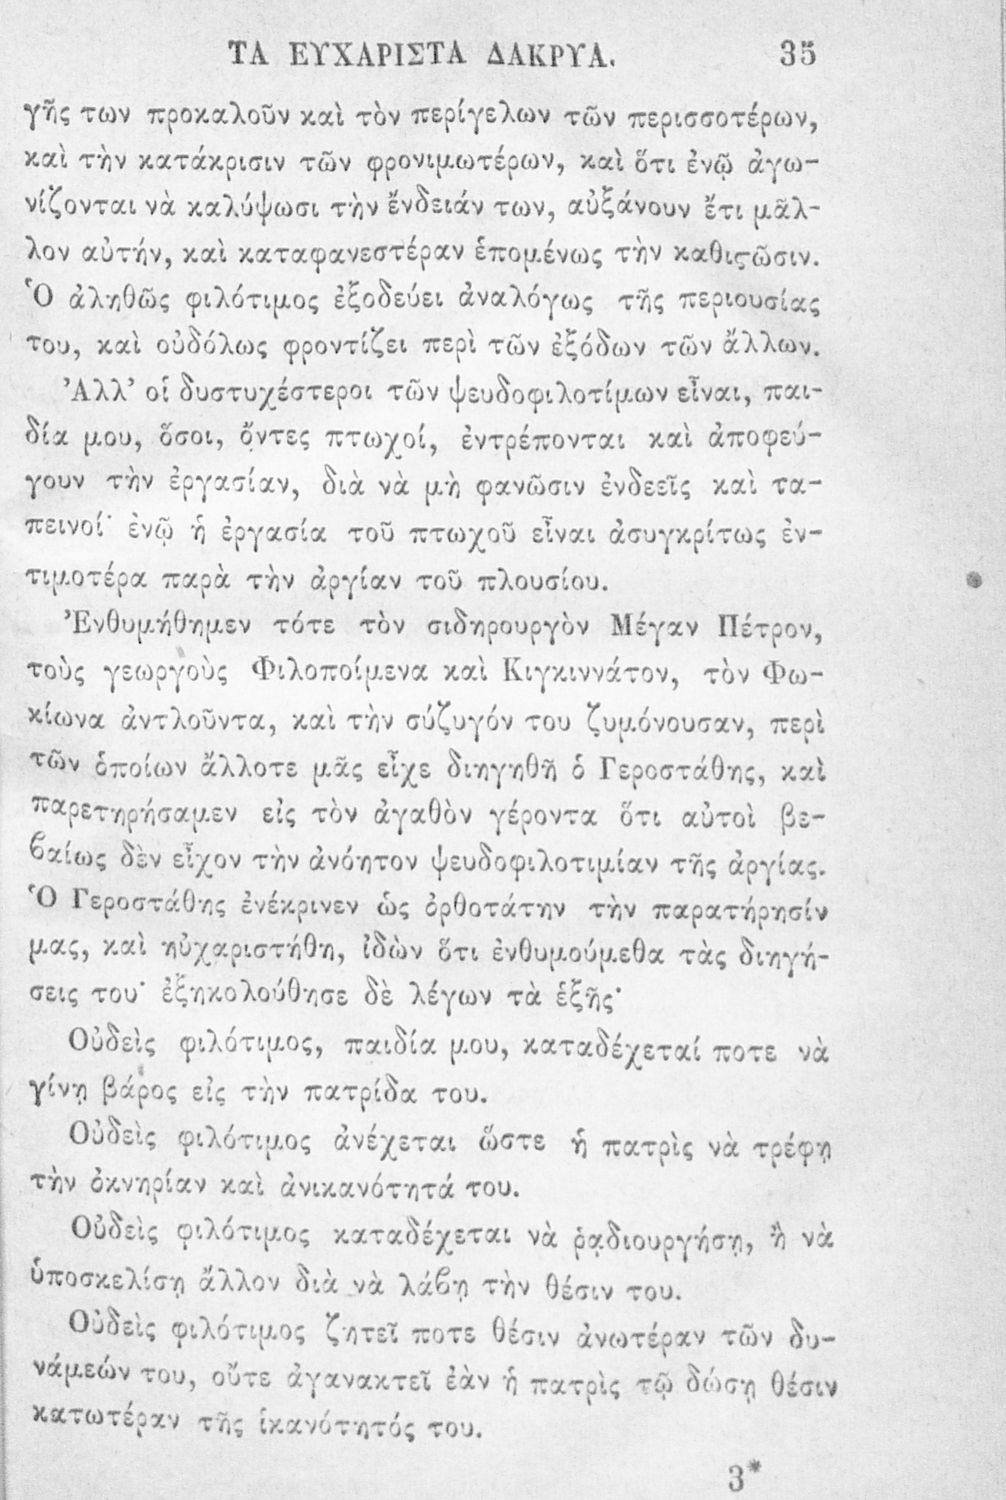 ΤΑ ΕΥΧΑΡΙΣΤΑ ΔΑΚΡΥΑ. 35
γῆς των προκαλοῦν καὶ τὸν περίγελων τῶν περισσοτέρων,
καὶ τὴν κατάκρισιν τῶν φρονιμωτέρων, καὶ ὅτι ἐνῷ ἀγω-
νίζονται νὰ καλύψωσι τὴν ἔνδειάν των, αὐξάνουν ἔτι μᾶλ-
λον αὐτήν, καὶ καταφανεστέραν ἑπομένως τὴν καθιςῶσιν.
Ὁ ἀληθῶς φιλότιμος ἐξοδεύει ἀναλόγως τῆς περιουσίας
του, καὶ οὐδόλως φροντίζει περὶ τῶν ἐξόδων τῶν ἄλλων.
Ἀλλ' οἱ δυστυχέστεροι τῶν ψευδοφιλοτίμων εἶναι, παι-
δία μου, ὅσοι, ὄντες πτωχοί, ἐντρέπονται καὶ ἀποφεύ-
γουν τὴν ἐργασίαν, διὰ νὰ μὴ φανῶσιν ἐνδεεῖς καὶ τα-
πεινοί· ἐνῷ ἡ ἐργασία τοῦ πτωχοῦ εἶναι ἀσυγκρίτως ἐν-
τιμοτέρα παρὰ τὴν ἀργίαν τοῦ πλουσίου.
Ἐνθυμήθημεν τότε τὸν σιδηρουργὸν Μέγαν Πέτρον,
τοὺς γεωργοὺς Φιλοποίμενα καὶ Κιγκιννάτον, τὸν Φω-
κίωνα ἀντλοῦντα, καὶ τὴν σύζυγόν του ζυμόνουσαν, περὶ
τῶν ὁποίων ἄλλοτε μᾶς εἶχε διηγηθῆ ὁ Γεροστάθης, καὶ
παρετηρήσαμεν εἰς τὸν ἀγαθὸν γέροντα ὅτι αὐτοὶ βε-
ϐαίως δὲν εἶχον τὴν ἀνόητον ψευδοφιλοτιμίαν τῆς ἀργίας.
Ὁ Γεροστάθης ἐνέκρινεν ὡς ὀρθοτάτην τὴν παρατήρησίν
μας, καὶ ηὐχαριστήθη, ἰδὼν ὅτι ἐνθυμούμεθα τὰς διηγή-
σεις του· ἐξηκολούθησε δὲ λέγων τὰ ἑξῆς·
Οὐδεὶς φιλότιμος, παιδία μου, καταδέχεταί ποτε νὰ
γίνῃ βάρος εἰς τὴν πατρίδα του.
Οὐδεὶς φιλότιμος ἀνέχεται ὥστε ἡ πατρὶς νὰ τρέφῃ
τὴν ὀκνηρίαν καὶ ἀνικανότητά του.
Οὐδεὶς φιλότιμος καταδέχεται νὰ ῥᾳδιουργήσῃ, ἢ νὰ
ὑποσκελίσῃ ἄλλον διὰ νὰ λάϐῃ τὴν θέσιν του.
Οὐδεὶς φιλότιμος ζητεῖ ποτε θέσιν ἀνωτέραν τῶν δυ-
νάμεών του, οὔτε ἀγανακτεῖ ἐὰν ἡ πατρὶς τῷ δώσῃ θέσιν
κατωτέραν τῆς ἱκανότητός του.
3*